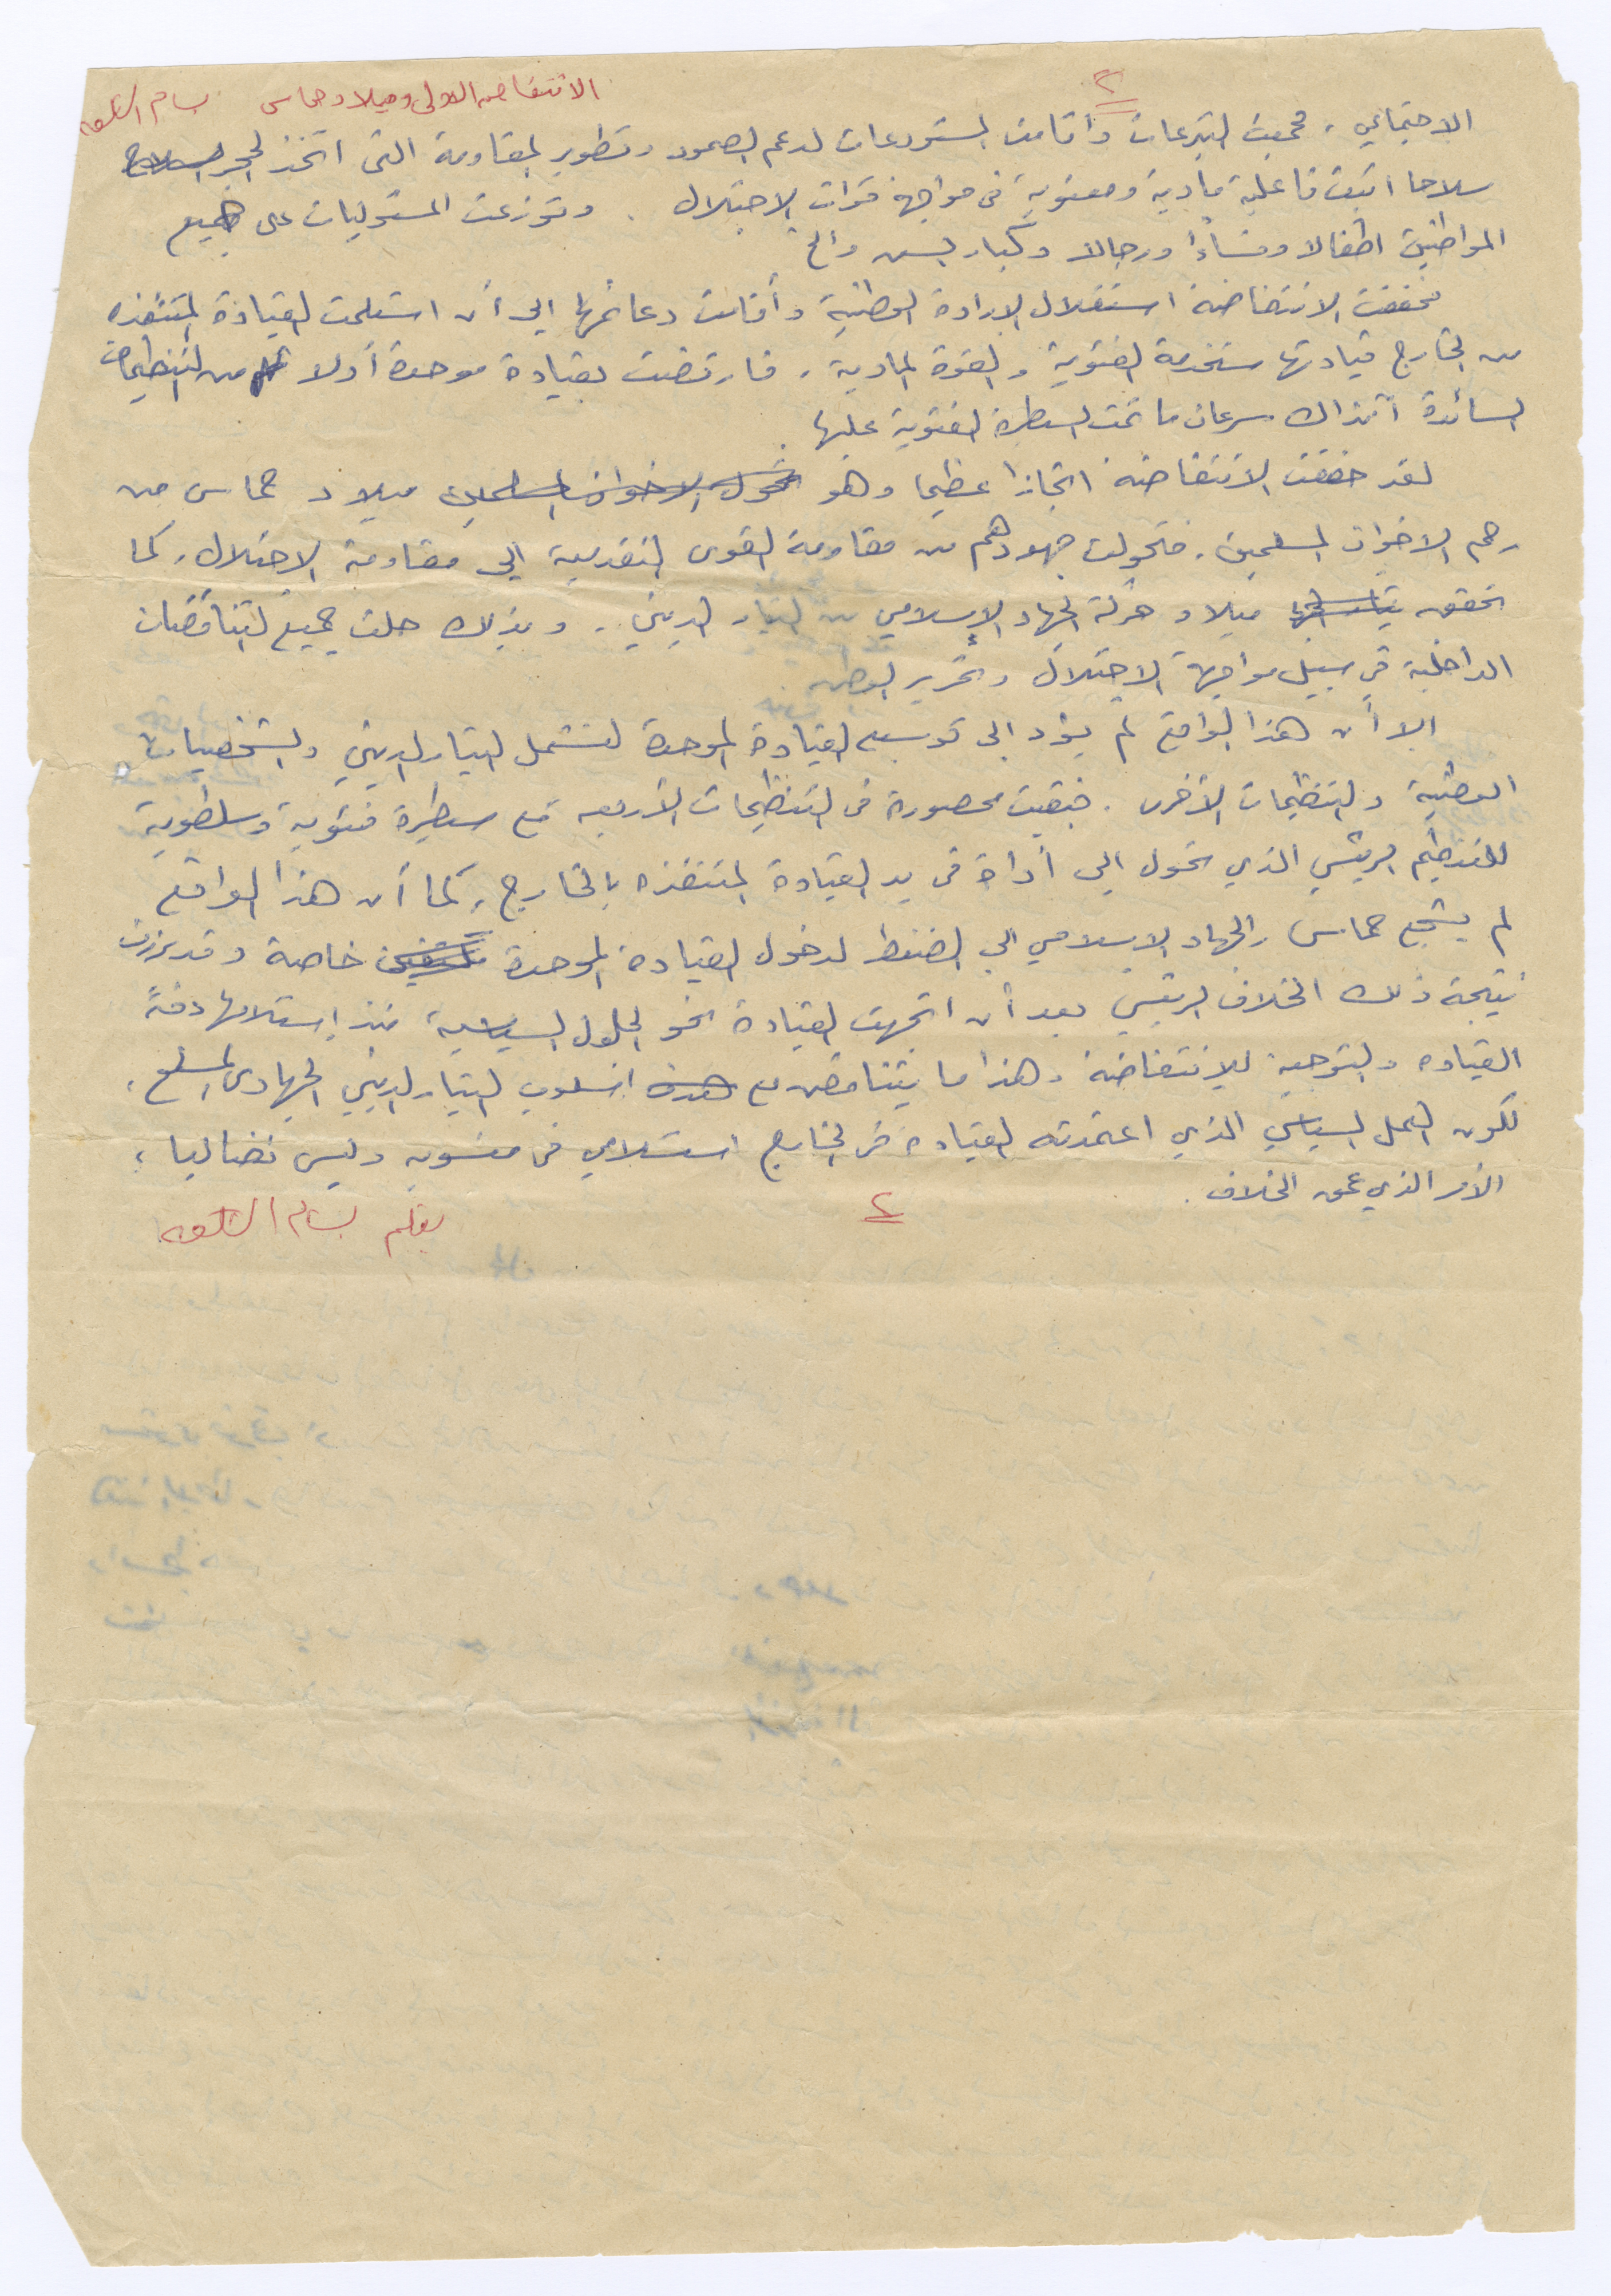 ٢
الانتفاضه الاولى وميلاد حماس بسام الشكعه
الاجتماعي ، فجمعت التبرعات وأقامت المستودعات لدعم الصمود وتطوير المقاومة التى اتخذ الحجر السلاح
سلاحا اثبت فاعلية مادية ومعنوية فى مواجهة قوات الاحتلال . وتوزعت المسئوليات على جميع
المواطنين اطفالا ونساءً ورجالا وكبار السن والخ
فحققت الانتفاضة استقلال الارادة الوطنية وأقامت دعائمها الى أن استلمت القيادة المتنفذه
من الخارج قيادتها مستخدمة الفئوية والقوة المادية ، فارتضت بقيادة موحدة أولا من التنظيمات
السائدة آنذاك سرعان ما تمت السيطرة الفئوية عليها .
لقد حققت الانتفاضة انجازا عظيما وهو تحول الاخوان المسلمين ميلاد حماس من
رحم الاخوان المسلمين . فتحولت جهودهم من مقاومة القوى التقدمية الى مقاومة الاحتلال ، كما
تحقق ميلاد حركة الجهاد الإسلامي من التيار الديني . وبذلك حلت جميع التناقضات
الداخلية في سبيل مواجهة الاحتلال وتحرير الوطن
الا أن هذا الواقع لم يؤد الى توسيع القيادة الموحدة لتشمل التيار الديني والشخصيات
الوطنية والتنظيمات الأخرى . فبقيت محصورة فى التنظيمات الأربعه مع سيطرة فئوية وسلطوية
للتنظيم الرئيسي الذي تحول الى أداة فى يد القيادة المتنفذه بالخارج ، كما أن هذا الواقع
لم يشجع حماس والجهاد الاسلامي الى الضغط لدخول القيادة الموحدة خاصة وقد برزت
نتيجة ذلك الخلاف الرئيسي بعد أن اتجهت القيادة نحو الحلول السياسية منذ استلامها دفة
القياده والتوجيه للانتفاضة وهذا ما يتناقض مع هدف اسلوب التيار الديني الجهادى المسلح ،
لكون العمل السياسي الذي اعتمدته القيادة في الخارج استسلامي فى مضمونه وليس نضاليا ،
الأمر الذي عمق الخلاف .
٢
بقلم بسام الشكعه